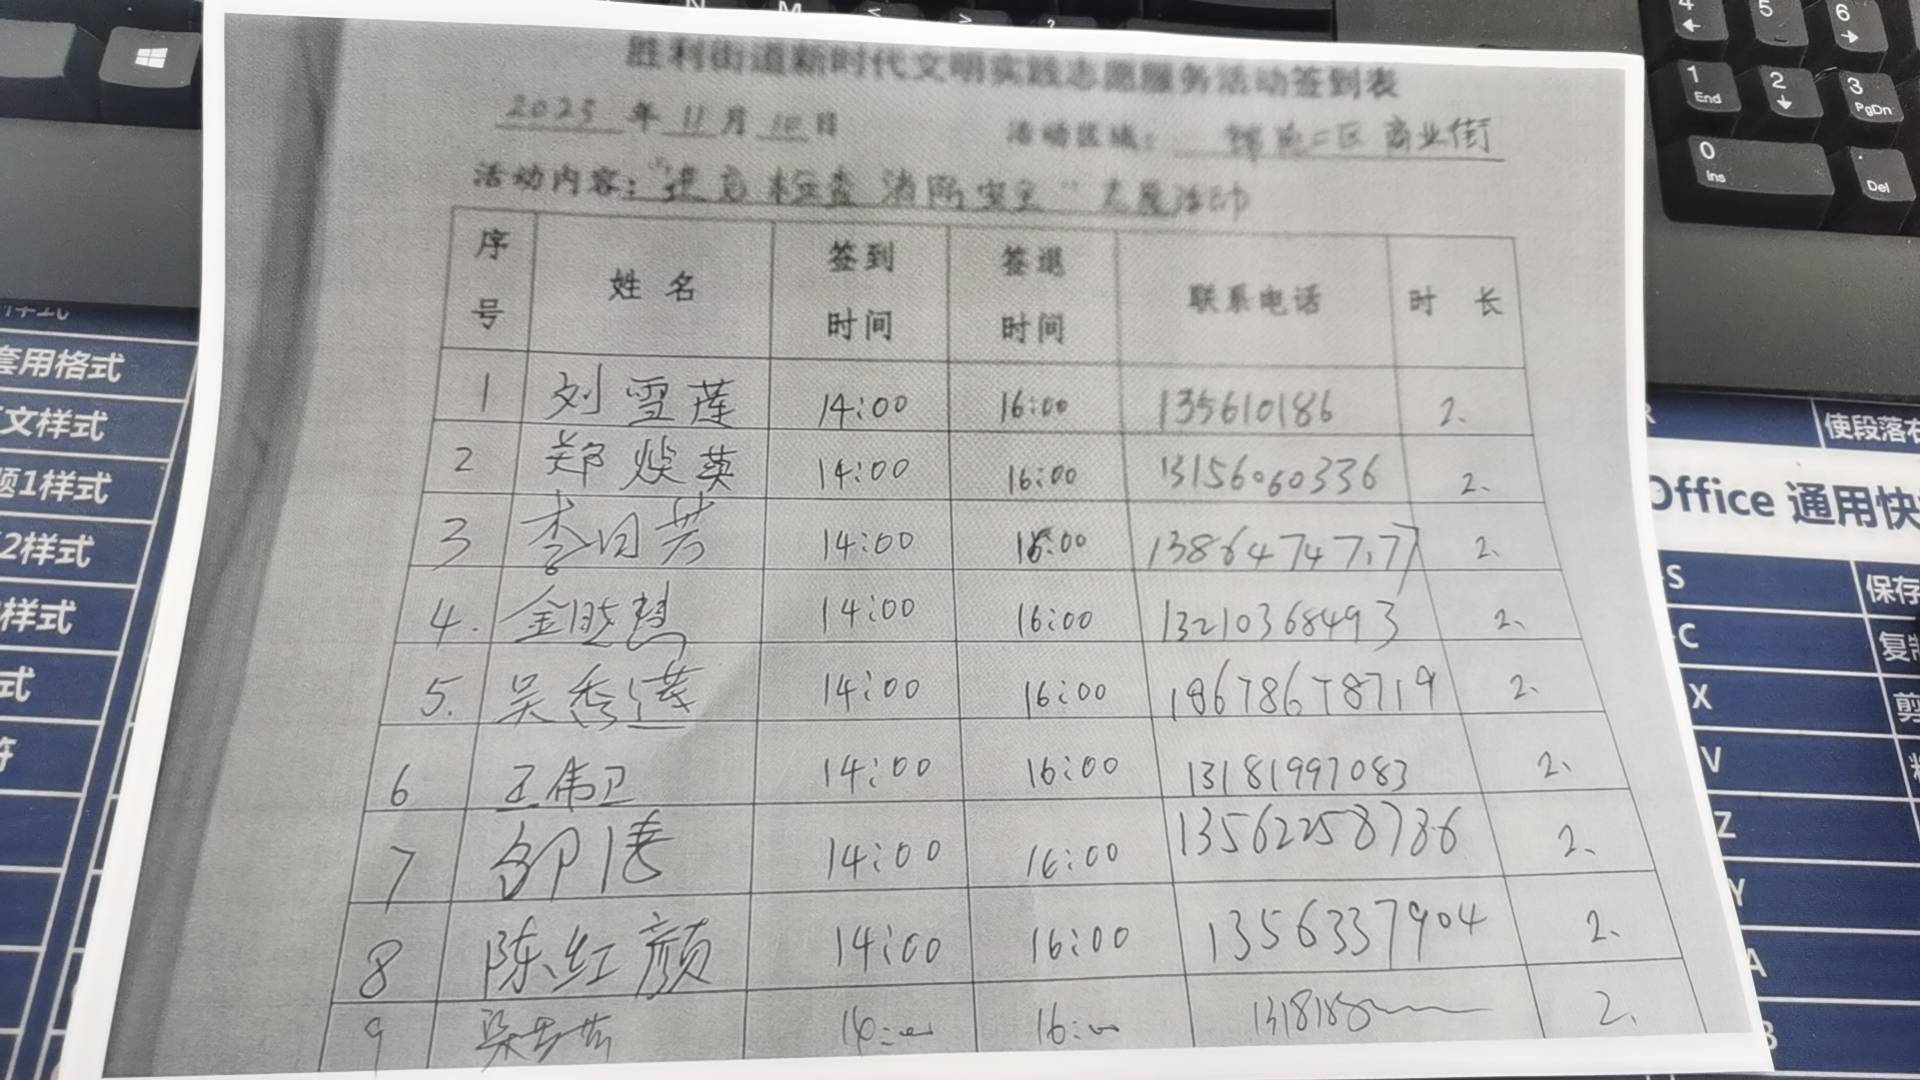 胜利街道新时代文明实践志愿服务活动签到表
2023年11月10日 活动区域: 锦苑二区商业街
活动内容:"进店检查 消防安全"志愿活动
序号 姓名 签到时间 签退时间 联系电话 时长
1 刘雪莲 14:00 16:00 135610186 2.
2 郑焕英 14:00 16:00 13156060336 2.
3 李日芳 14:00 16:00 13864747177 2.
4. 金晓慧 14:00 16:00 13210368493 2.
5. 吴秀莲 14:00 16:00 18678678719 2.
6 王伟卫 14:00 16:00 13181997083 2.
7 邹 14:00 16:00 13562258786 2.
8 陈红颜 14:00 16:00 1356337904 2.
9 16: 2.
套用格式
文样式
题1样式
2样式
样式
式
符
使段落右
Office 通用快
S 保存
C 复制
X 剪
V
Z
Y
A
B
N M < > ?
4 5 6
1 End 2 3 PgDn
0 Ins . Del